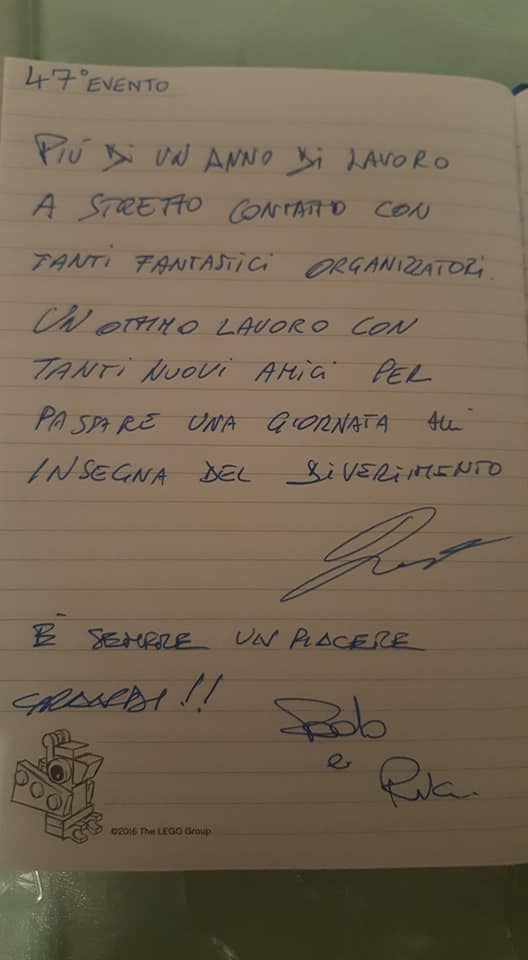 47° EVENTO
PIÚ DI UN ANNO DI LAVORO
A STRETTO CONTATTO CON
TANTI FANTASTICI ORGANIZZATORI.
UN OTTIMO LAVORO CON
TANTI NUOVI AMICI PER
PASSARE UNA GIORNATA ALL'
INSEGNA DEL DIVERIMENTO
È SEMPRE UN PIACERE
GRANDI!!
e
©2016 The LEGO Group